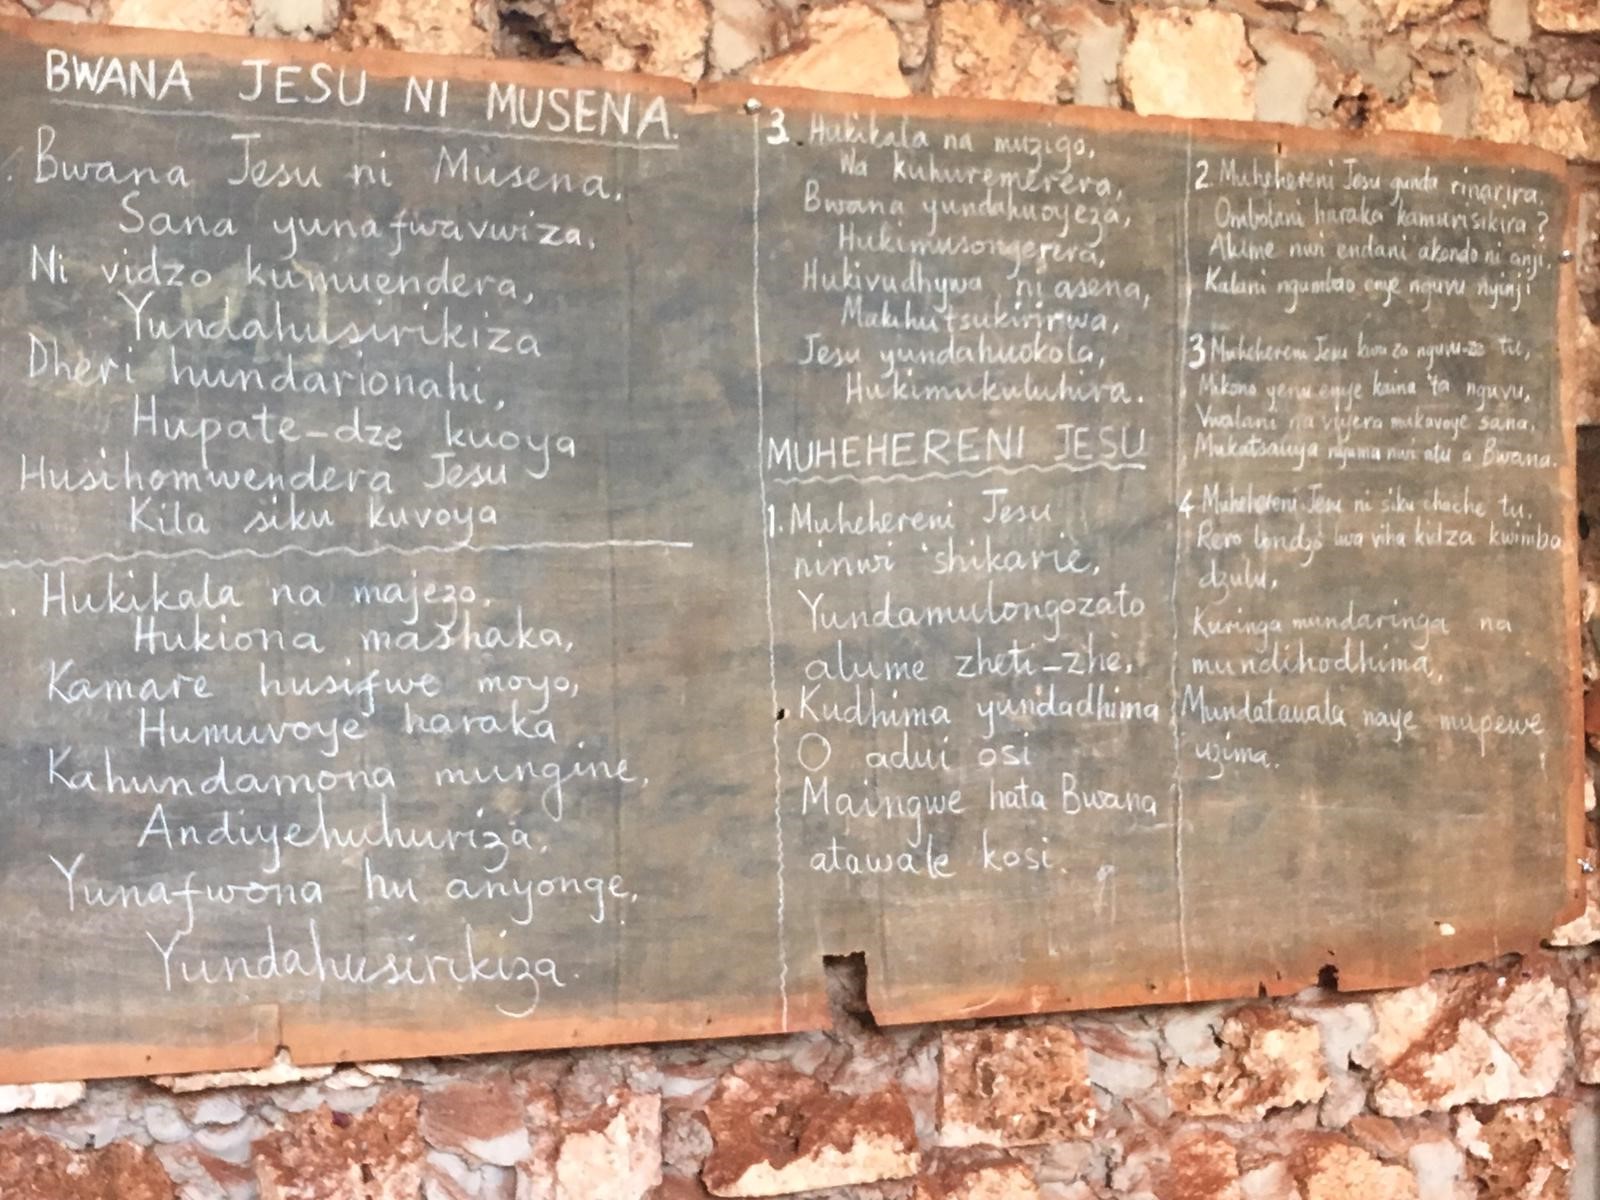 BWANA JESU NI MUSENA.
Bwana Jesu ni Musena,
Sana yunafwavwiza,
Ni vidzo kumuendera,
Yundahusirikiza
Dheri hundarionahi,
Hupate-dze kuoya
Husihomwendera Jesu
Kila siku kuvoya
Hukikala na majezo,
Hukiona mashaka,
Kamare husifwe moyo,
Humuvoye haraka
Kahundamona mungine,
Andiyehuhuriza,
Yunafwona hu anyonge,
Yundahusirikiza.
3. Hukikala na muzigo,
Wa kuhuremerera,
Bwana yundahuoyeza,
Hukimusongerera,
Hukivudhywa ni asena,
Makihutsukirirwa,
Jesu yundahuokola,
Hukimukuluhira.
MUHEHERENI JESU
1. Muhehereni Jesu
ninwi 'shikarie,
Yundamulongozato
alume zheti-zhe,
Kudhima yundadhima
O adui osi
Maingwe hata Bwana
atawale kosi.
2 Muhehereni Jesu gunda rinarira,
Ombolani haraka kamurisikira?
Alume nwi endani akondo ni anji,
Kalani ngumbao enye nguvu nyinji
3 Muhehereni Jesu kwa zo nguvu-ze tu,
Mikono yenu enye kaina 'ta nguvu,
Vwalani na viyera mukavoye sana,
Mukatsauya nyuma nwi atu a Bwana.
4 Muhehereni Jesu ni siku chache tu,
Rero londzo lwa viha kidza kwimba
dzulu,
Kuringa mundaringa na
mundihodhima,
Mundatawala naye mupewe
uzima.